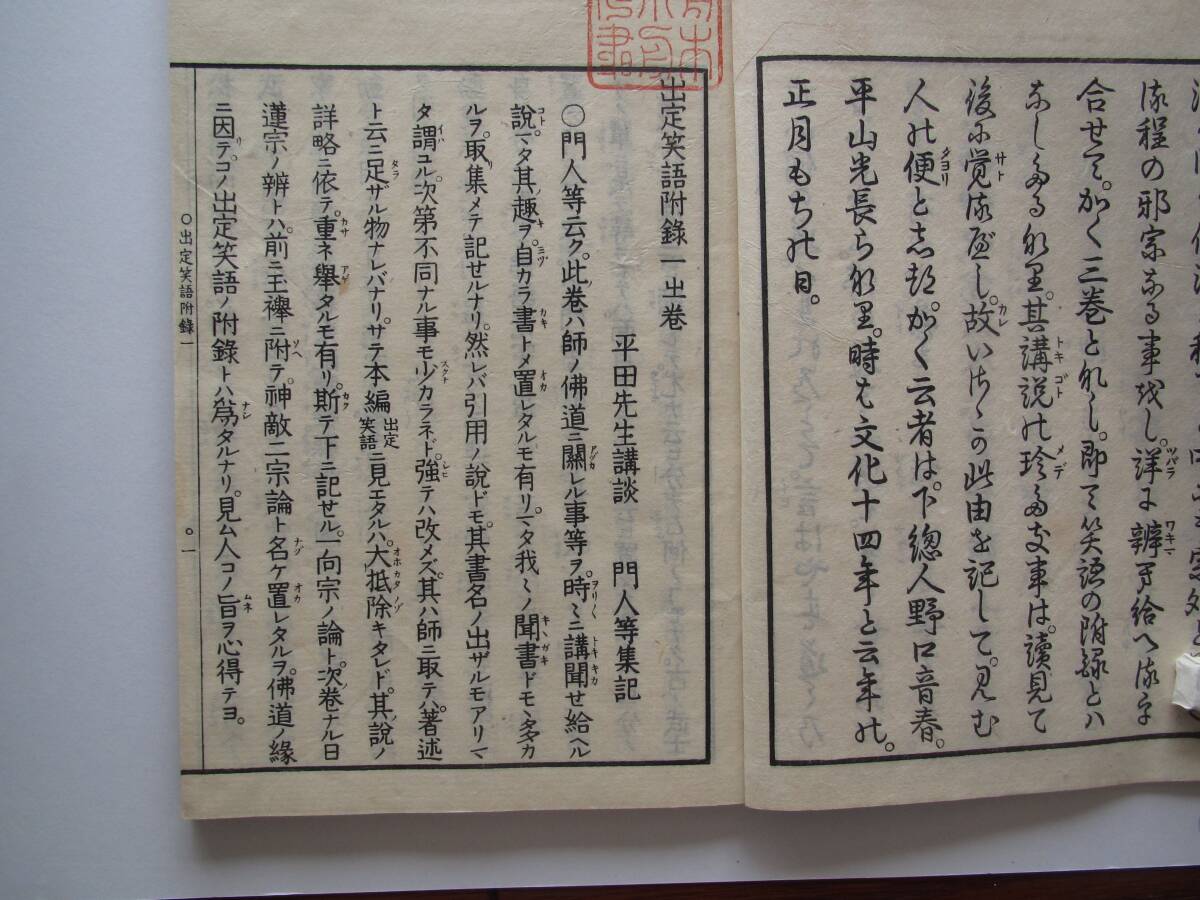 流程の邪宗なる事をし。詳に辨ヲ給へ流字
合せて。かく三巻とれし。即て笑語の附録とハ
なしゝる那里。其講説の珍多き事は。讀見て
後に覚流べし。故いさゝの此由を記して。見む
人の便とも祁。かく云者は。下總人野口音春。
平山光長ら那里。時は文化十四年と云年の。
正月もちの日。
出定笑語附錄一出卷
平田先生講談 門人等集記
○門人等云ク。此卷ハ師ノ佛道ニ關レル事等ヲ。時〻ニ講聞せ給ヘル
說。マタ其趣ヲ自カラ書トメ置レタルモ有リ。マタ我〻ノ聞書ドモヽ多カ
ルヲ。取集メテ記せルナリ。然レバ引用ノ說ドモ。其書名ノ出ザルモアリマ
タ謂ユル次第不同ナル事モ少カラネド。強テハ改メズ。其ハ師ニ取テハ。著述
ト云ニ足ザル物ナレバナリ。サテ本編出定笑語ニ見エタルハ。大抵除キタレド。其說ノ
詳略ニ依テ。重ネ擧タルモ有リ。斯テ下ニ記せル。一向宗ノ論ト。次卷ナル日
蓮宗ノ辨トハ。前ニ玉襷ニ附テ。神敵二宗論ト名ケ置レタルヲ。佛道ノ緣
ニ因テ。コノ出定笑語ノ附錄トハ爲タルナリ。見ム人コノ旨ヲ心得テヨ。
○出定笑語附錄一
○一